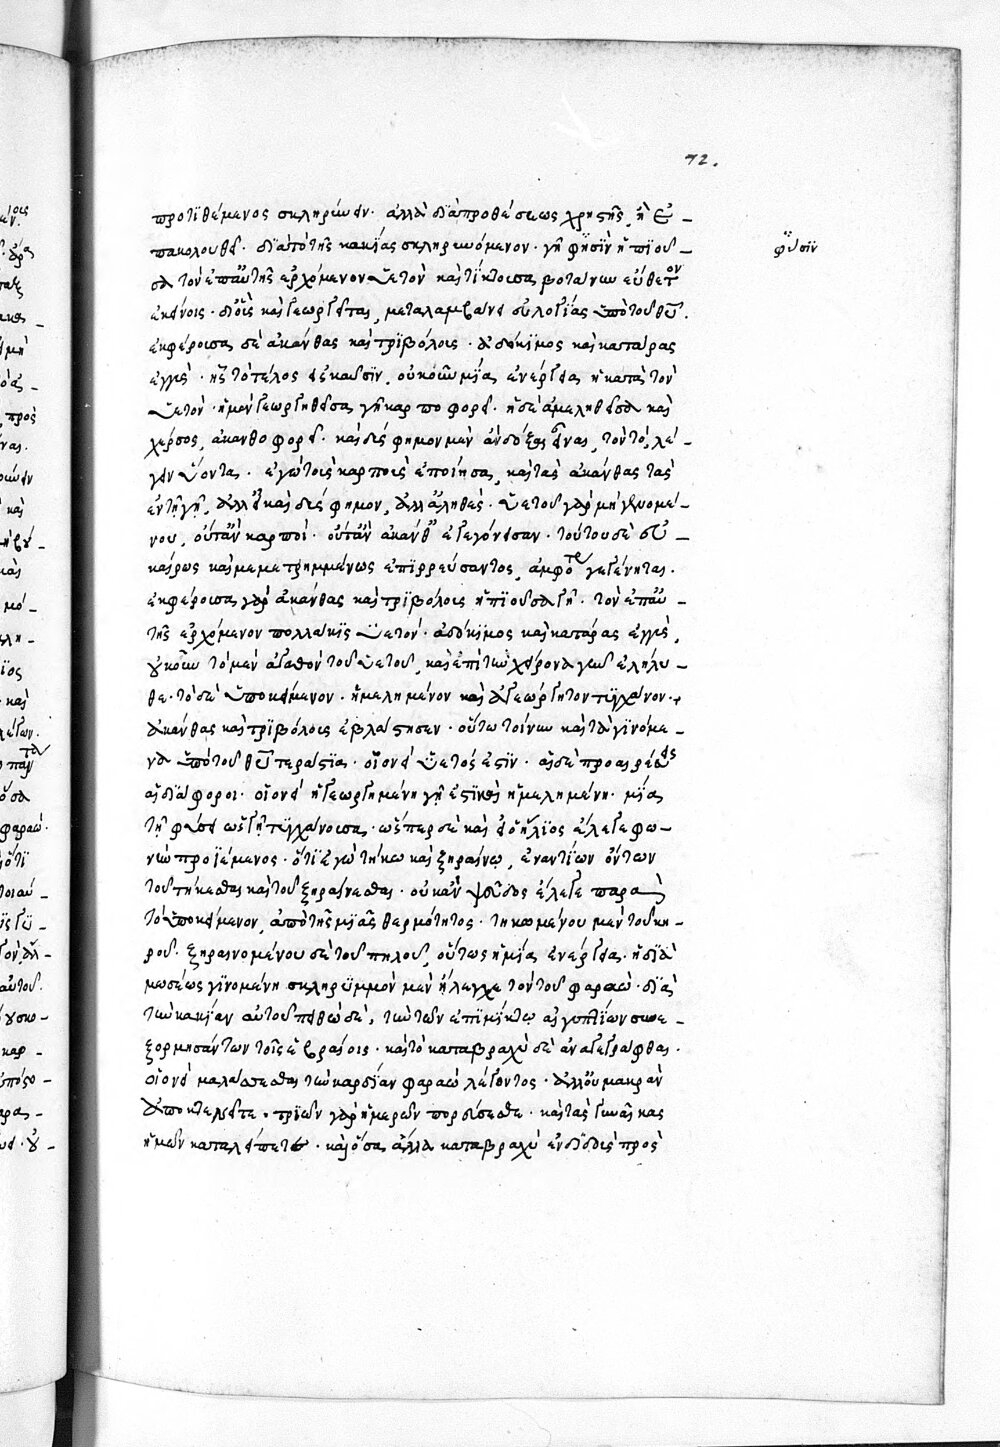 72.
προτιθέμενος σκληρύνειν· ἀλλὰ διὰ προθέσεως χρηστῆς, ἧ ἐ
πακολουθεῖ· διὰ τὸ τῆς κακίας σκληρυνόμενον· γῆ φησὶν ἡ πιοῦ
φύσιν
σα τὸν ἐπ' αὐτῆς ἐρχόμενον ὑετὸν καὶ τίκτουσα βοτάνην εὔθετον
ἐκείνοις· δι' οὓς καὶ γεωργεῖται, μεταλαμβάνει εὐλογίας ὑπὸ τοῦ θῦ.
ἐκφέρουσα δὲ ἀκάνθας καὶ τριβόλους· ἀδόκιμος καὶ κατάρας
ἐγγὺς· ἧς τὸ τέλος εἰς καῦσιν, οὐκοῦν μία ἐνέργεια ἡ κατὰ τὸν
ὑετόν· ἡ μὲν γεωργηθεῖσα γῆ καρποφορεῖ· ἡ δὲ ἀμεληθεῖσα καὶ
χέρσος, ἀκανθοφορεῖ· καὶ δύσφημον μὲν ἂν δόξαι εἶναι, τὸν τὸ, λέ
γειν ὕοντα· ἐγὼ τοὺς καρποὺς ἐποίησα, καὶ τὰς ἀκάνθας τὰς
ἐν τῇ γῇ, ἀλλ' εἰ καὶ δύσφημον, ἀλλ' ἀληθές· ὑετοῦ γὰρ μὴ γενομέ
νου, οὔτ' ἂν καρποὶ· οὔτ' ἂν ἄκανθαι ἐγεγόνεισαν· τούτου δὲ εὐ
καίρως καὶ μεμετρημμένως ἐπιρρεύσαντος, ἀμφότερα γεγένηται.
ἐκφέρουσα γὰρ ἀκάνθας καὶ τριβόλους ἡ πιοῦσα γῆ· τὸν ἐπ' αὐ
τῆς ἐρχόμενον πολλάκις ὑετόν· ἀδόκιμος καὶ κατάρας ἐγγὺς,
οὐκοῦν τὸ μὲν ἀγαθὸν τοῦ ὑετοῦ, καὶ ἐπὶ τὴν χείρονα γῆν ἐλήλυ
θε· τὸ δὲ ὑποκείμενον· ἠμελημένον καὶ ἀγεώργητον τυγχάνον·
ἀκάνθας καὶ τριβόλους ἐβλάστησεν· οὕτω τοίνυν καὶ τὰ γινόμε
να ὑπὸ τοῦ θῦ τεράστια· οἱονεὶ ὑετός ἐστιν· αἱ δὲ προαιρέσεις
αἱ διάφοροι· οἱονεὶ ἡ γεωργημένη γῆ ἐστὶ καὶ ἡ μελημένη· μία
τῇ φύσει ὡς γῆ τυγχάνουσα· ὥσπερ δὲ καὶ εἰ ὁ ἥλιος ἔλεγε φω
νὴν προϊέμενος· ὅτι ἐγὼ τήκω καὶ ξηραίνω, ἐναντίων ὄντων
τοῦ τήκεσθαι καὶ τοῦ ξηραίνεσθαι· οὐκ ἂν ψεῦδος ἔλεγε παρὰ
τὸ ὑποκείμενον, ἀπὸ τῆς μιᾶς θερμότητος· τηκομένου μὲν τοῦ κη
ροῦ· ξηραινομένου δὲ τοῦ πηλοῦ, οὕτως ἡ μία ἐνέργεια· ἡ διὰ
μωσέως γινομένη σκληρυμμὸν μὲν ἤλεγχε τὸν τοῦ φαραὼ· διὰ
τὴν κακίαν αὐτοῦ πειθὼ δὲ, τὴν τῶν ἐπιμίκτῳ αἰγυπτίων συνε
ξορμησάντων τοῖς ἑβραίοις· καὶ τὸ καταβραχὺ δὲ ἀναγεγράφθαι·
οἱονεὶ μαλάσσεσθαι τὴν καρδίαν φαραὼ λέγοντος· ἀλλ' οὐ μακρὰν
ἀποκτενεῖτε· τριῶν γὰρ ἡμερῶν πορεύεσθε· καὶ τὰς γυναῖκας
ἡμῶν καταλείπετε· καὶ ὅσα ἄλλα καταβραχὺ ἐνδίδως πρὸς